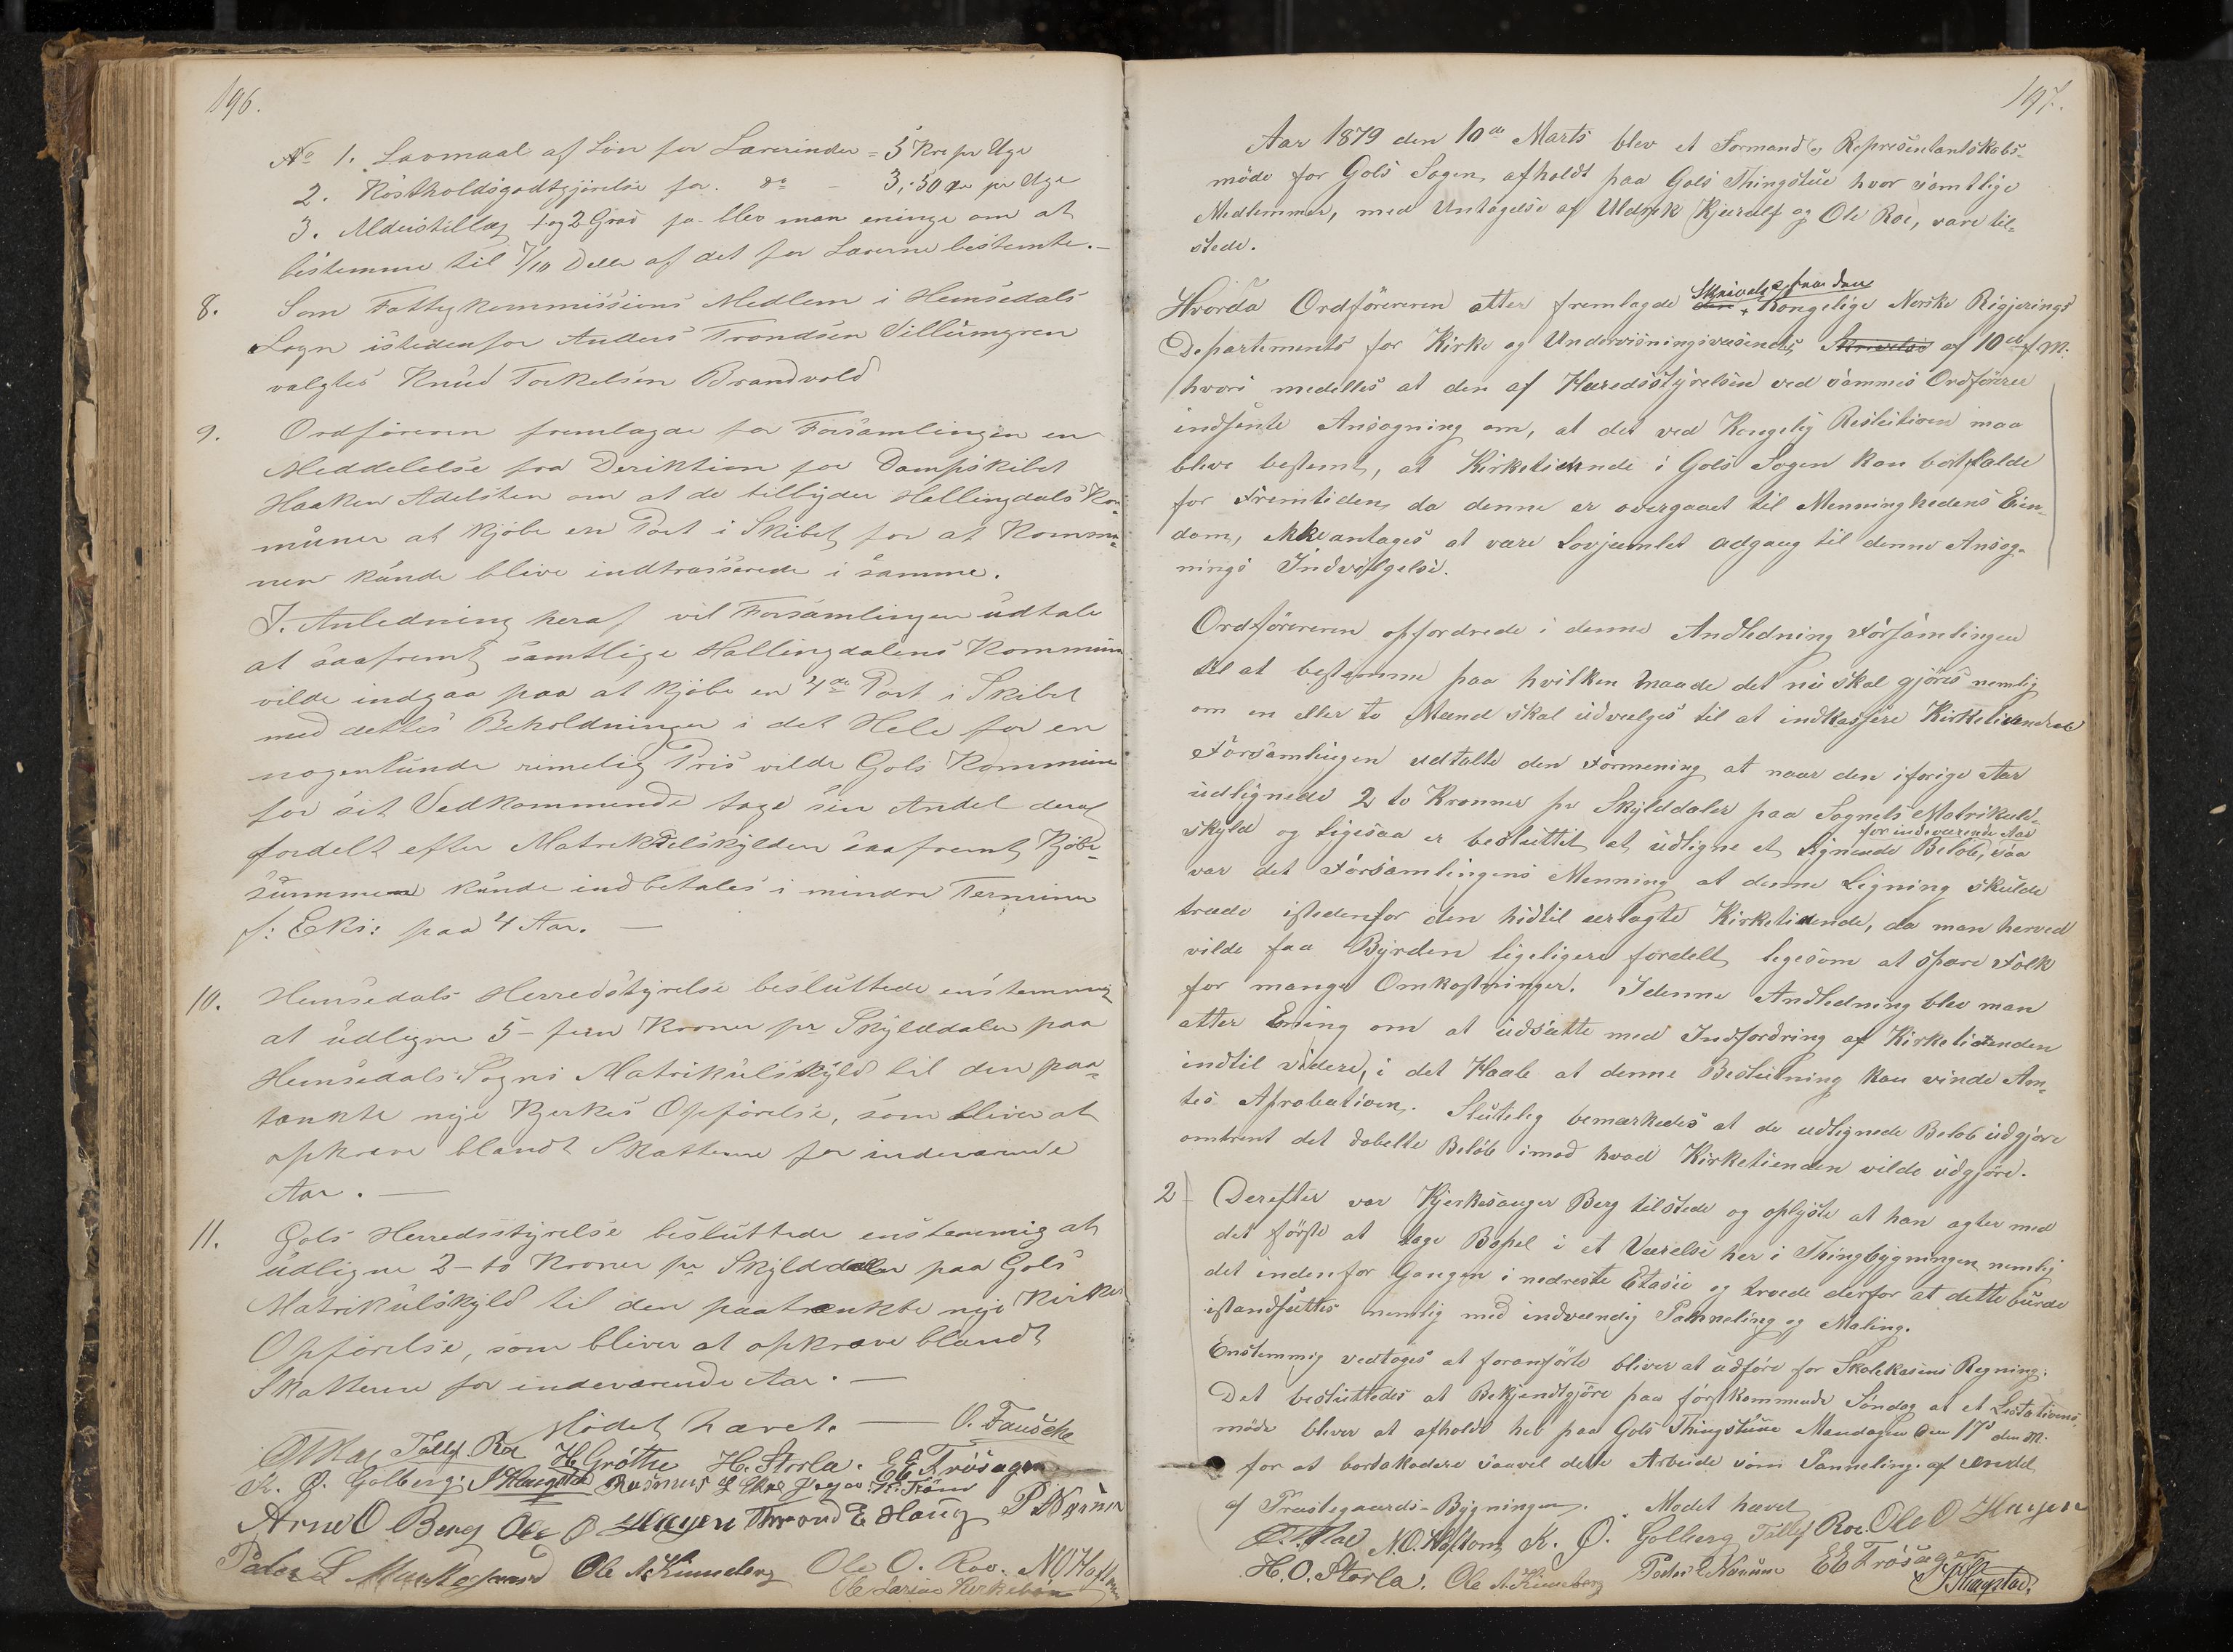 196.
No 1. Lavmaal af Lön for Lærerinder = 5 Kr pr Uge
2. Kostholdsgodtgjörelse for do - 3,50 Kr pr Uge
3. Alderstillæg 1 og 2 Grad blev man eninge om at
bestemme til 7/10 Deler af det for Lærerne bestemte.—
8. Som Fattigkommissions Medlem i Hemsedals
Sogn istedenfor Anders Trondsen Villumgren
valgtes Knud Torkelsen Brandvold
9. Ordföreren fremlagde for Forsamlingen en
Meddelelse fra Deriktion for Dampskibet
Haaken Adelsten om at de tilbyder Hallingdals Kom-
muner at kjöbe en Part i Skibet for at Kommu-
ner kunde blive indtrasserede i samme.
I Anledning heraf vil Forsamlingen udtale
at saafremt samtlige Hallingdalens Kommuner
vilde indgaa paa at kjöbe en 4de Part i Skibet
med dettes Beholdninger i det Hele for en
nogenlunde rimelig Pris vilde Gols Kommune
for sit Vedkommende tage sin Andel deraf
fordelt efter Matrikelskylden saafremt Kjöbe-
summen kunde indbetales i mindre Terminer
f: Eks: paa 4 Aar. —
10. Hemsedals Herredstyrelse besluttede enstemmig
at udligne 5 - fem Kroner pr Skylddaler paa
Hemsedals Sogns Matrikulskyld til den paa-
tænkte nye Kjerkes Opförelse, som bliver at
opkræve blandt Skatterne for indeværende
Aar. —
11. Gols Herredsstyrelse besluttede enstemmig at
udligne 2 - to Kroner pr Skylddaler paa Gols
Matrikulskyld til den paatænkte nye Kirkes
Opförelse, som bliver at opkræve blandt
Skatterne for indeværende Aar. —
Mödet hævet. — O. Fauske
Tollef Roe H Gröthe H. Storla. E E Trösager
K. O. Golberg. S Haugstad Rasmus
Arne O Berg Ole O Hagen Thrond E Haug P Narum
Peder L Ole N Kinneberg Ole O. Roe. N O Hoftun
Ole Larsen Kirkebøen
197.
Aar 1879 den 10de Marts blev et Formand og Represæntantskabs-
möde for Gols Sogen afholdt paa Gols Thingstue hvor samtlige
Medlemmer, med Untagelse af Uldrek Kjærulf og Ole Roe, vare til-
stede.
Skrivelse fra den
Hvorda Ordföreren atter fremlagde den Kongelige Norske Regjerings
Departements for Kirke og Undervisningsvæsenets Skrivelse af 10de f. M.
hvori medelles at den af Heredsstyrelsen ved sammes Ordförer
indsente Ansögning om, at det ved Kongelig Reslution maa
blive bestemt, at Kirketiende i Gols Sogen kan bortfalde
for Fremtiden da denne er overgaaet til Menninghedens Eien-
dom, ikke antages at være Lovjemlet adgang til denne Ansög-
nings Indvilgelse.
Ordföreren opfordrede i denne Andledning Forsamlingen
til at bestemme paa hvilken Maade det nu skal gjöres nemlig
om en eller to Mænd skal udvælges til at indkassere Kirketienden
Forsamlingen udtalte den Formening at naar den iforige Aar
udlignede 2 to Kronner pr Skylddaler paa Sognets Matrikul-
for indeværende Aar
skyld og ligesaa er besluttet at udligne et lignende Belöb, saa
var det Forsamlingens Menning at denne Ligning skulde
træde istedenfor den hidtil erlagte Kirketiende, da man herved
vilde faa Byrden ligeligere fordelt ligesom at spare Folk
for mange Omkostninger. I denne Andledning blev man
atter Ening om at udsætte med Indfordring af Kirketienden
indtil videre, i det Haab at denne Beslutning kan vinde Am-
tes Aprobation. Slutelig bemærkedes at de udlignede Belöb udgjöre
omtrent det dobelte Belöb imod hvad Kirketienden vilde udgjöre.
2 - Derefter var Kjerkesanger Berg tilstede og oplyste at han agter med
det förste at tage Bopel i et Værelse her i Thingbygningen nemlig
det indenfor Gangen i nedreste Etasie og troede derfor at dette burde
istandsættes nemlig med indvendig Panneling og Maling.
Enstemmig vedtoges at foranförte bliver at udföre for Skolekasens Regning.
Det besluttedes at Bekjendtgjöre paa förstkommende Söndag at et Lisitations
möde bliver at afholde her paa Gols Thingstue Mandagen den 17de den M.
for at bortakodere saavel dette Arbeide som Panneling af endel
af Prestegaards-Bygningen. Modet hævet
N. O. Hoftun K. O. Golberg Tollef Roe. Ole O Hagen
H. O. Storla. Ole N. Kinneberg Peder E Narum E E Trösager
S Haugstad.